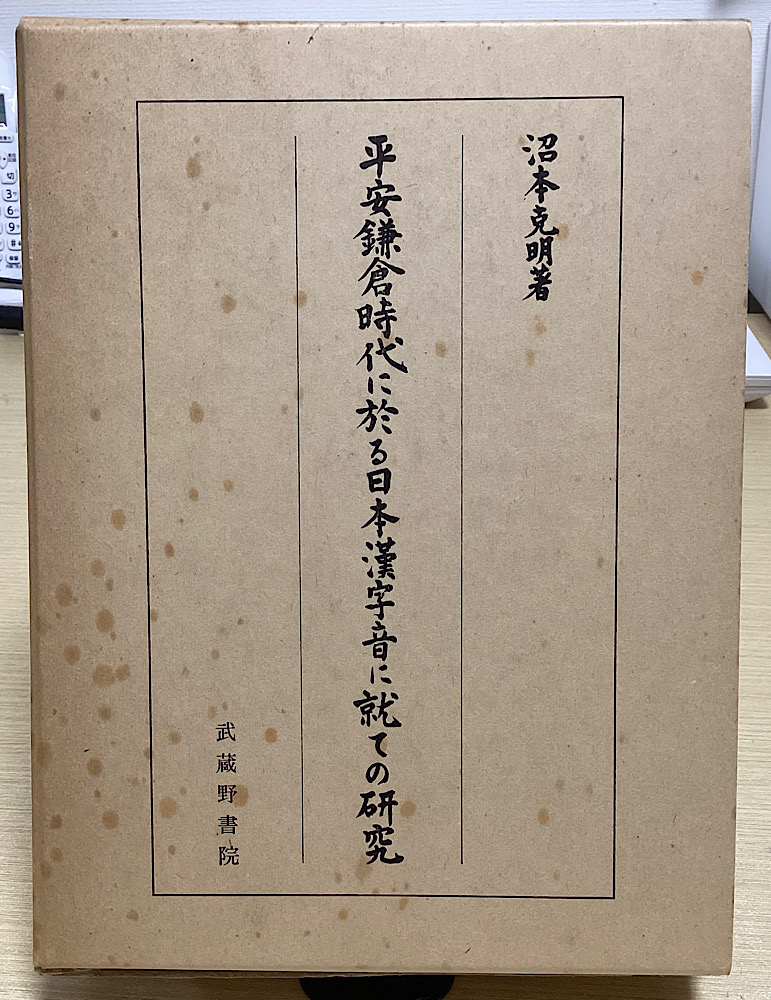 沼本克明著
平安鎌倉時代に於る日本漢字音に就ての研究
武蔵野書院
切
3
6
9
#